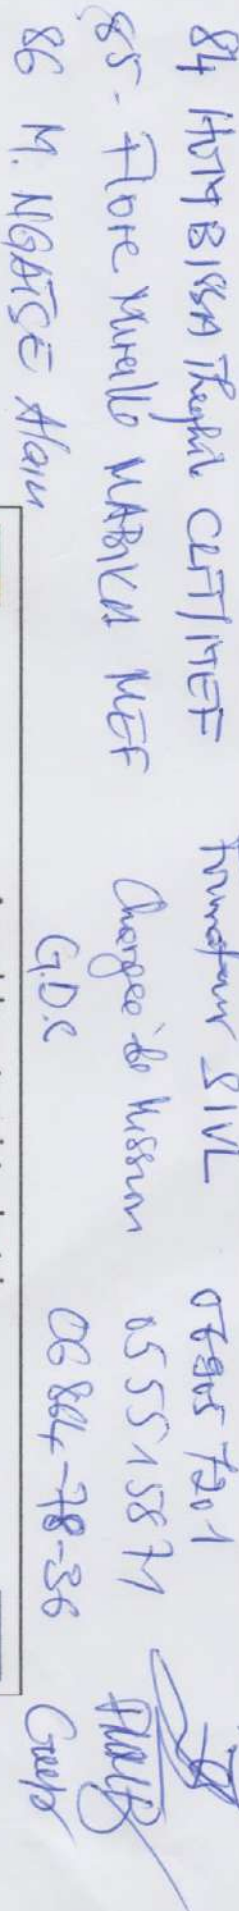 84 HOMBISSA Theophile CLFT/MEF Formateur SIVL 06 905 7201
85 - Flore Mireille MABIKA MEF Chargée de Mission 05 551 58 71
86 M. NGATSE Alain G.D.C 06 864-78-36